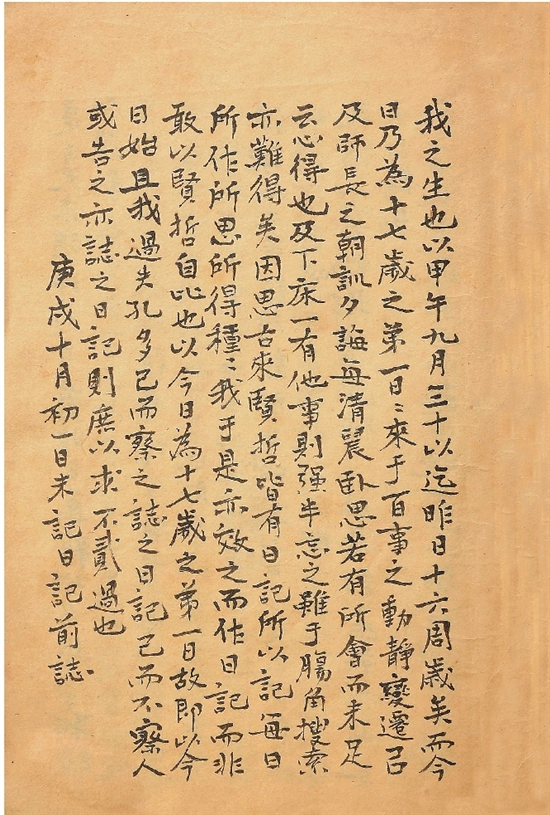 我之生也以甲午九月三十以迄昨日十六周歲矣而今
日乃為十七歲之第一日〻來于百事之動靜變遷己
及師長之朝訓夕誨每清晨臥思若有所會而未足
云心得也及下床一有他事則强半忘之雖于腸角搜索
亦難得矣因思古來賢哲皆有日記所以記每日
所作所思所得種〻我于是亦效之而作日記而非
敢以賢哲自比也以今日為十七歲之第一日故即以今
日始且我過失孔多己而察之誌之日記己而不察人
或告之亦誌之日記則庶以求不貳過也
庚戌十月初一日未記日記前誌